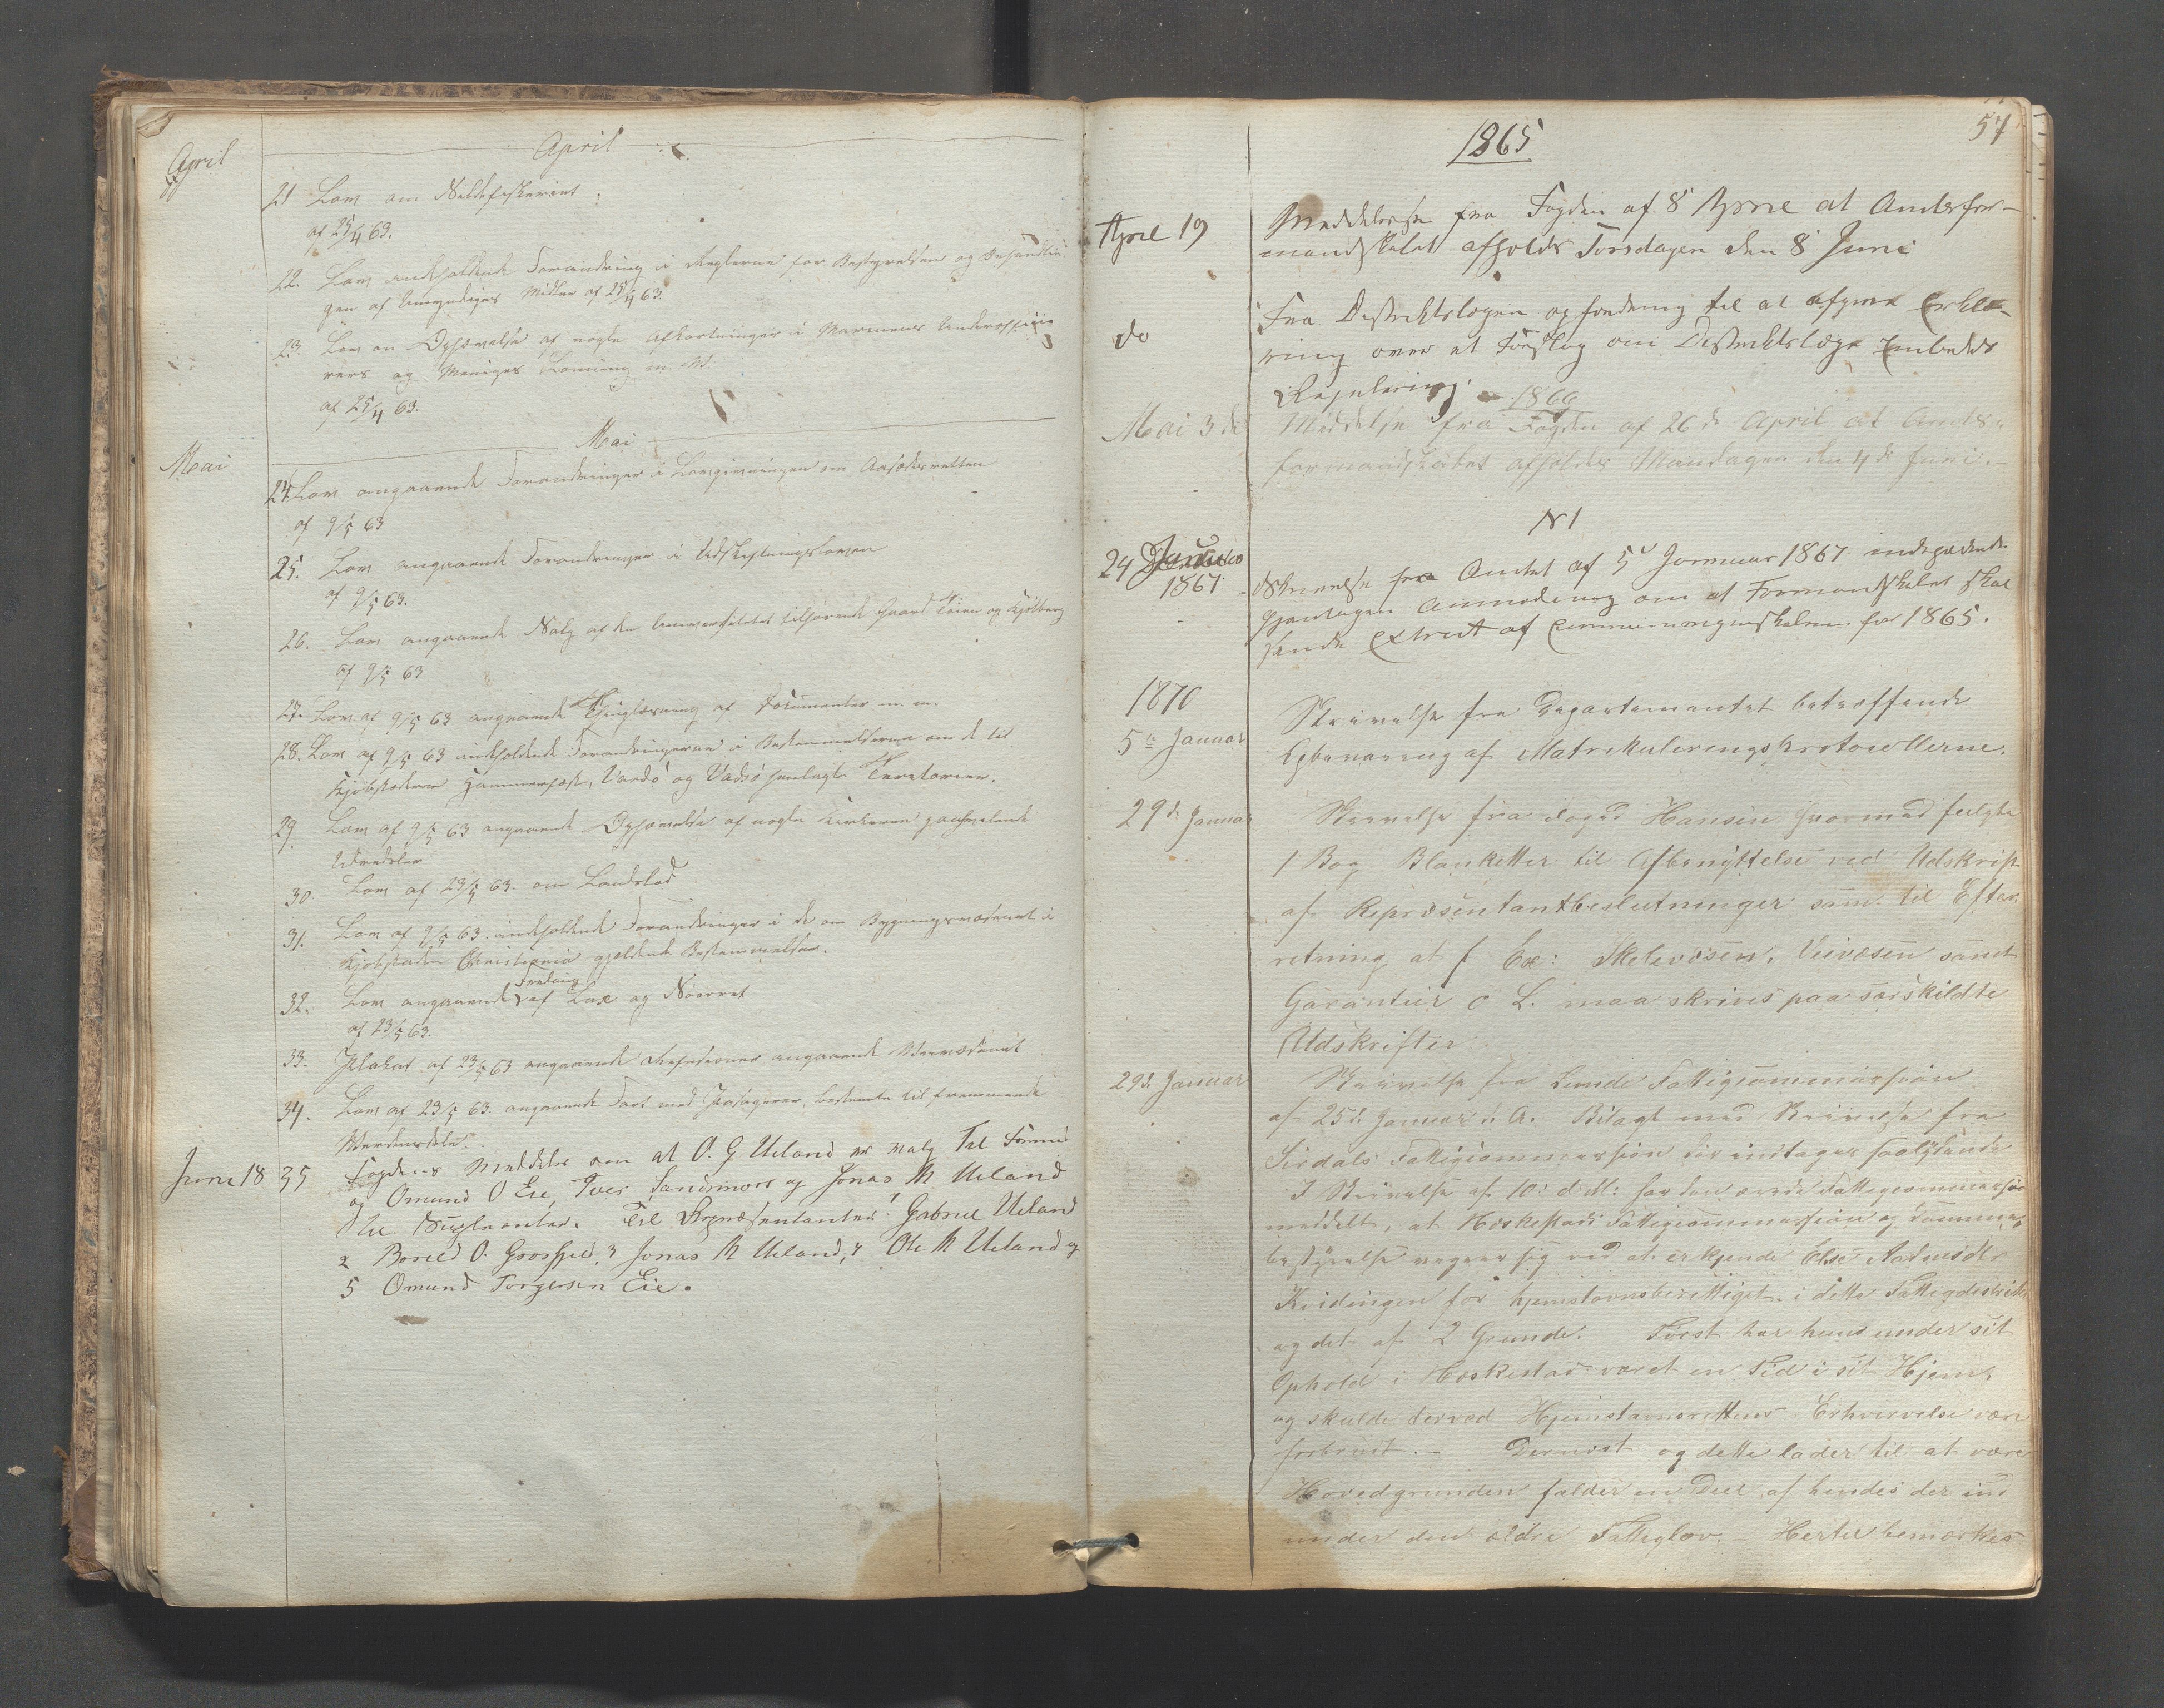 April
April
21 Lov om Sildefiskeriet
af 25/4 63.
22. Lov indeholdende Forandring i Reglerne for Bestyrelsen og Behandlin-
gen af Umyndiges Midler af 25/4 63.
23. Lov om Ophævelse af nogle Afkortninger i Marinens Underoffice
rers og Meniges Lønning m. M.
af 25/4 63.
Mai
Mai
24. Lov angaaende Forandringer i Lovgivningen om Aasædesretten
af 9/5 63
25. Lov angaaende Forandringer i Udskiftningsloven
af 9/5 63.
26. Lov angaaende Salg af den Universitetet tilhørende Gaard Tøien og Kjølberg
af 9/5 63
27. Lov af 9/5 63 angaaende Thinglæsning af Documenter m. m.
28. Lov af 9/5 63 indeholdende Forandringerne i Bestemmelserne om de til
Kjøbstæderne Hammerfest, Vardø og Vadsø henlagte Territorier.
29. Lov af 9/5 63 angaaende Ophævelse af nogle Kirkerne paahvilende
Udredsler
30. Lov af 23/5 63. om Landslod
31. Lov af 9/5 63. indeholdende Forandringer i de om Bygningsvæsenet i
Kjøbstaden Christiania gjeldende Bestemmelser.
32. Lov angaaende Fredning af Lax og Søørret
af 23/5 63.
33. Plakat af 23/5 63 angaaende Refusioner angaaende Veivæsenet
34. Lov af 23/5 63. angaaende Fart med Passagerer, bestemte til fremmende
Verdensdele.
Juni 18 35 Fogdens Meddelse om at O. G. Ueland er valg Til Formd
og Omund O Eie, Iver Sandsmork og Jonas M Ueland
til Supleanter. Til Repræsentanter: Gabriel Ueland
2 Boreld O. Grosfjeld, 3 Jonas M Ueland, 4 Ole M Ueland og
5 Omund Torgersen Eie.
57
1865
April 19 Meddelelse fra Fogden af 8 April at Amtsfor-
mandskabet afholdes Torsdagen den 8 Juni
do Fra Destriktslægen opfordring til at afgive Erklæ-
ring over et Forslag om Destriktslæge Embedets
Regulering.
1866
Mai 3 de Meddelse fra Fogden af 26de April at Amts-
formandskabet afholdes Mandagen den 4de Juni.
N 1
24 Januar
1867
Skrivelse fra Amtet af 5 Januar 1867 indeholdende
Gjentagen Anmodning om at Formandskabet skal
sende Extract af Communeregnskaberne for 1865.
1870
5te Januar
Skrivelse fra Departementet betræffende
Opbevaring af Matrikuleringsprotocollerne.
29de Januar Skrivelse fra Foged Hansen hvormed fulgte
1 Bog Blanketter til Afbenyttelse ved Udskrift
af Repræsentantbeslutninger samt til Efter
retning at f Ex: Skolevæsen, Veivæsen samt
Garantier o L. maa skrives paa særskildte
Udskrifter.
29de Januar Skrivelse fra Lunde Fattigcommission
af 25de Januar d. A. Bilagt med Skrivelse fra
Sirdals Fattigcommission der indtages saalydende
I Skrivelse af 10: d M: har den ærede Fattigcommission
meddelt, at Heskestads Fattigcommission og Commune
bestyrelse vægrer sig ved at erkjende Else Aadnesdtr
Kvidingen for hjemstavnsberettiget i dette Fattigdistrikt
og det af 2 Grunde. Først har hun under sit
Ophold i Heskestad været en Tid i sit Hjem,
og skulde derved Hjemstavnsrettens Erhvervelse være
forbrudt. – Dernæst og dette lader til at være
Hovedgrunden falder en Deel af hendes der ind
under den ældre Fattiglov. – Hertil bemærkes